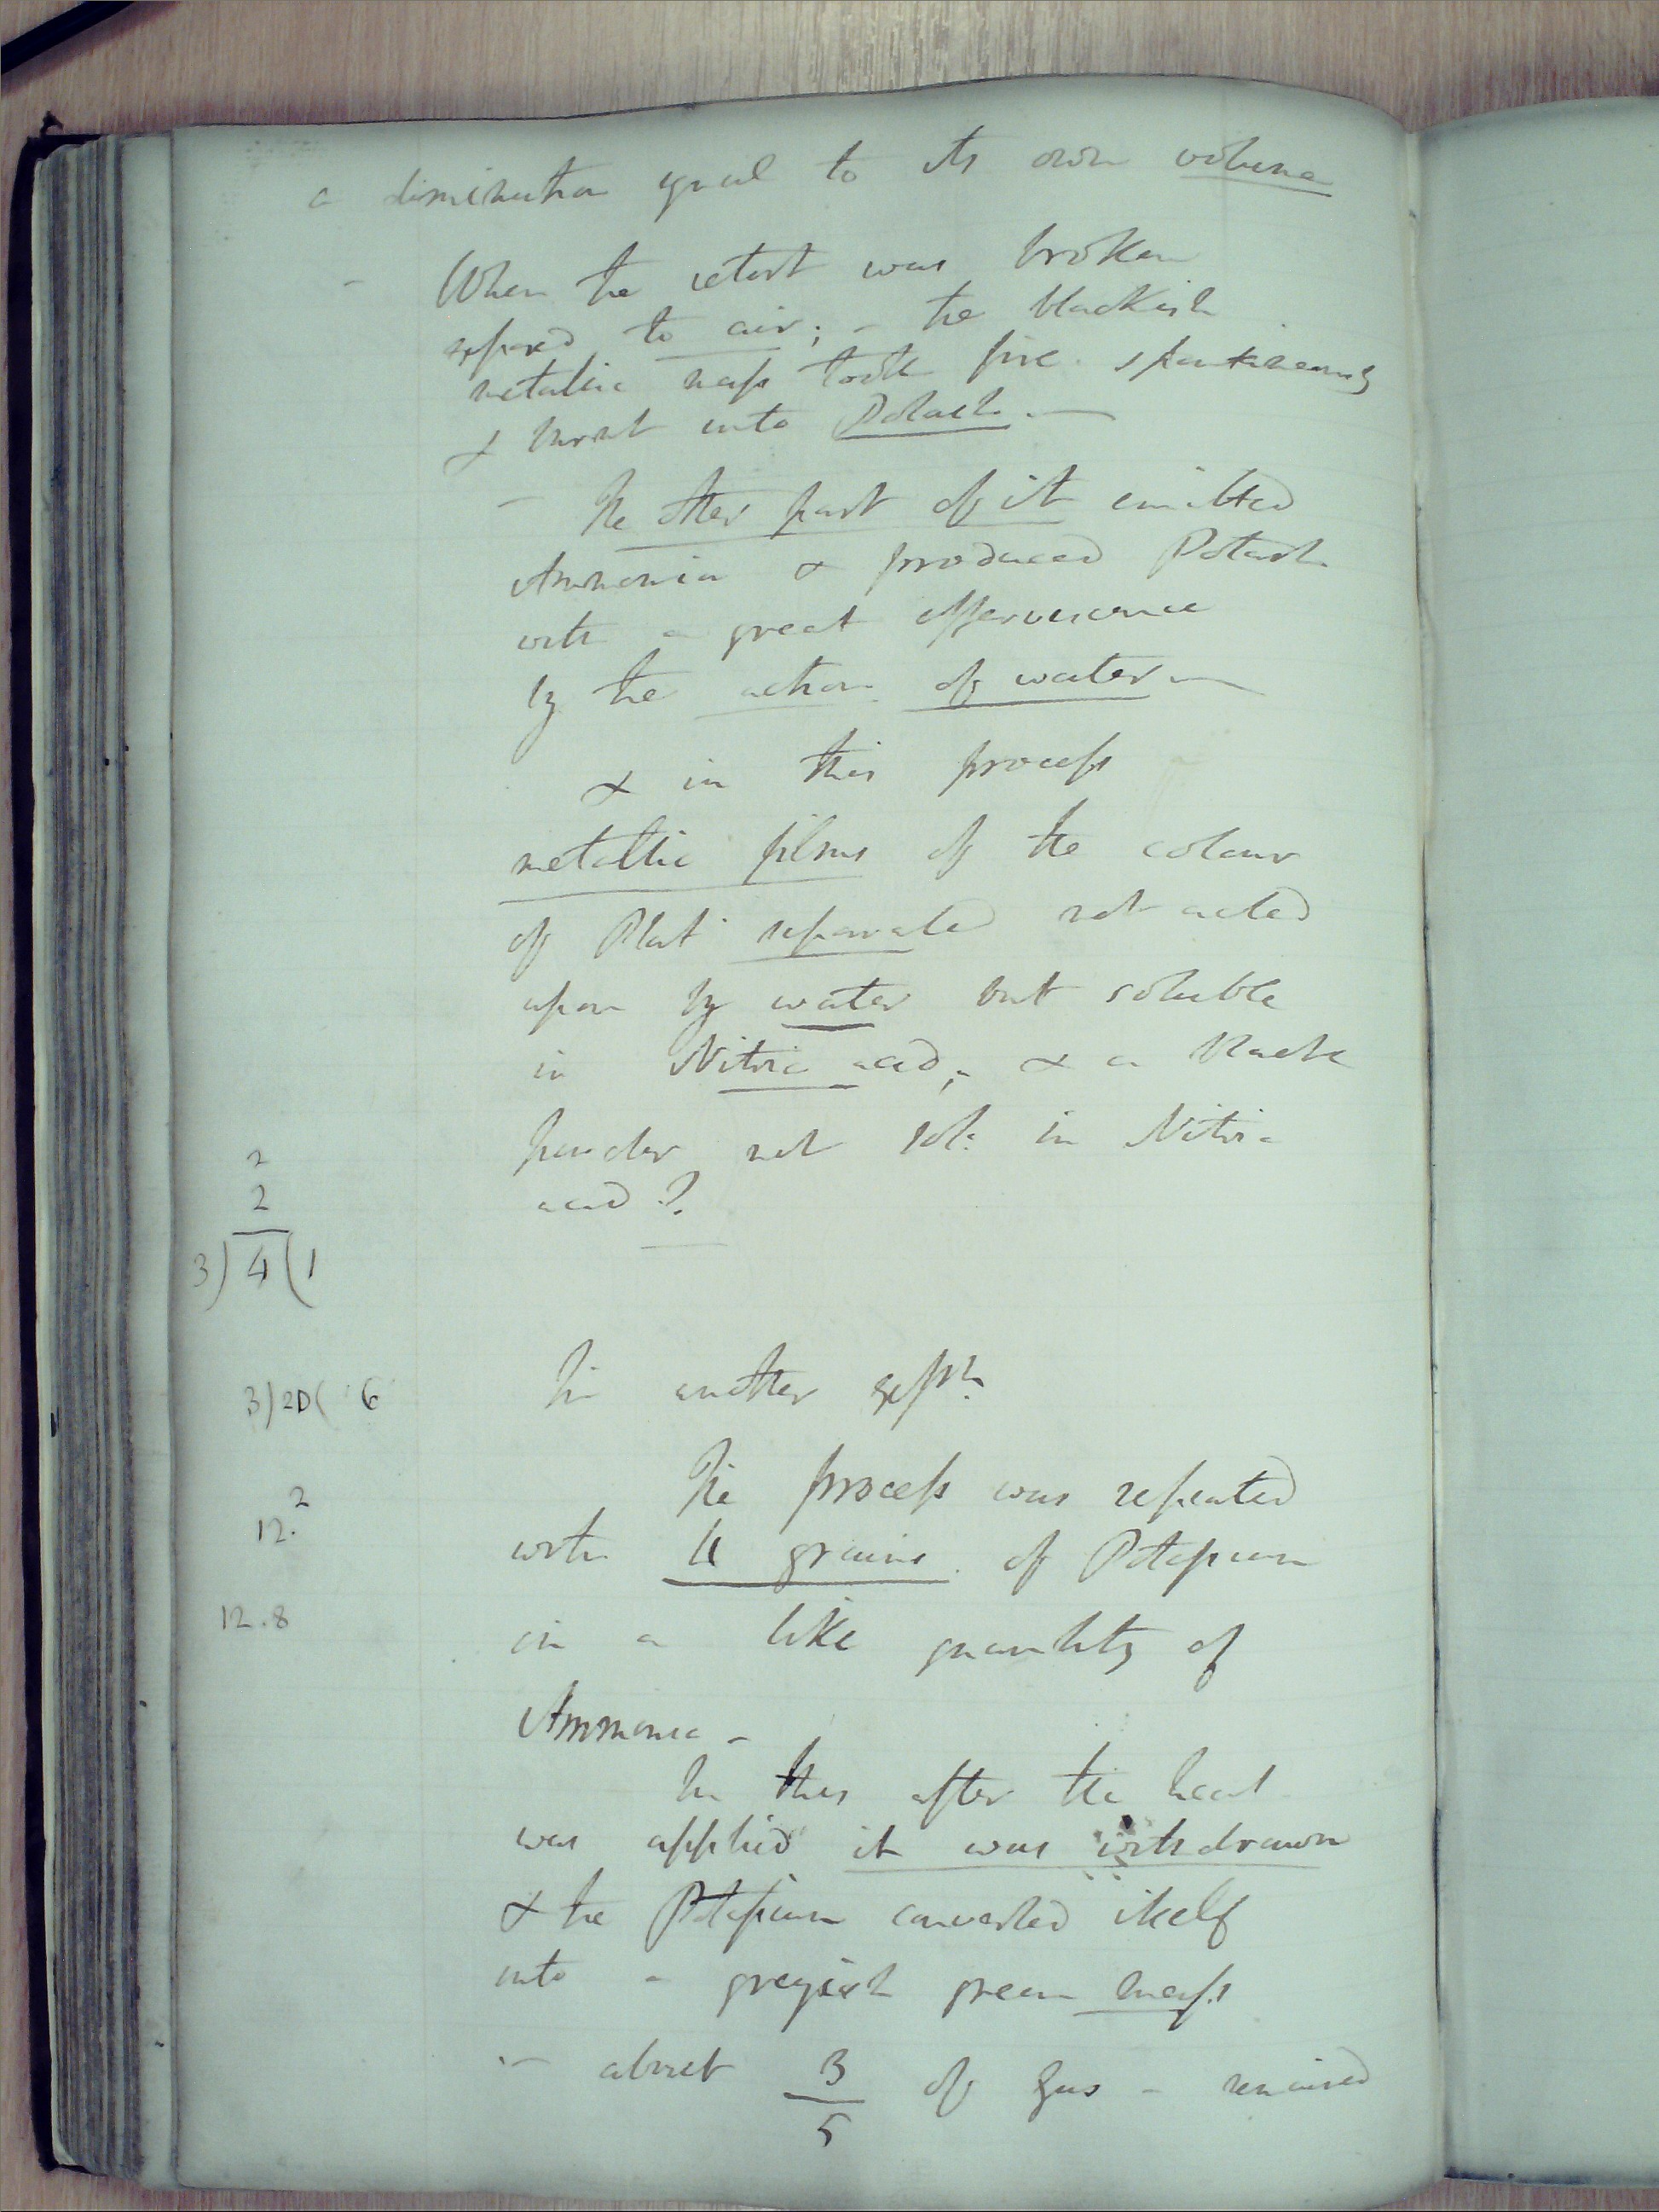 a diminution equal to its own volume
- When the retort was broken
exposed to air; - the blackish
metallic mass took fire spontaneously
& burnt into Potash. —
- The other part of it emitted
Ammonia & produced Potash
with a great effervescence
by the action of water —
& in this process
metallic films of the colour
of Plat: separated not acted
upon by water but soluble
in Nitric acid; & a black
powder not sol: in Nitric
acid?
2
2
3) 4 (1
3) 20 ( 6
12.2
12.8
In another expt.
The process was repeated
with grains of Potassium
in a like quantity of
Ammonia -
In this after the heat
was applied it was withdrawn
& the Potassium converted itself
into a greyish green mass
- about 3/5 of gas - remained